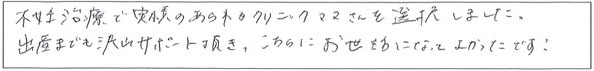 不妊治療で実績のあられるクリニックママさんを選択しました。
出産までも沢山サポート頂き、こちらにお世話になってよかったです!